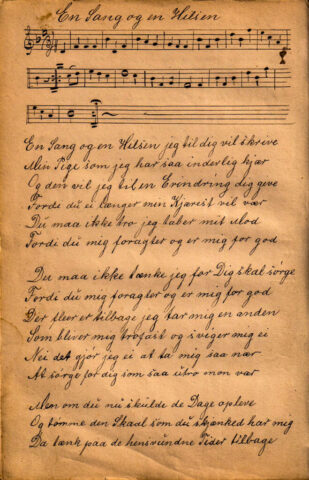 En Sang og en Hilsen
En Sang og en Hilsen jeg til dig vil skrive
Min Pige som jeg har saa inderlig kjær
Og den vil jeg til en Erendring dig give
Fordi du ei længer min Kjærest vil vær
Du maa ikke tro jeg taber mit Mod
Fordi du mig foragter og er mig for god
Du maa ikke tænke jeg for Dig skal sørge
Fordi du mig foragter og er mig for god
Der blever tilbage jeg har mig en anden
Som bliver mig trofast og sviger mig ei
Nei det gjør jeg ei at ta mig saa nær
At sørge for dig som saa utro mon vær
Men om du nu skulde de Dage opleve
Og tømme den Skaal som du skjænked har mig
Da tænk paa de hensvundne Tider tilbage